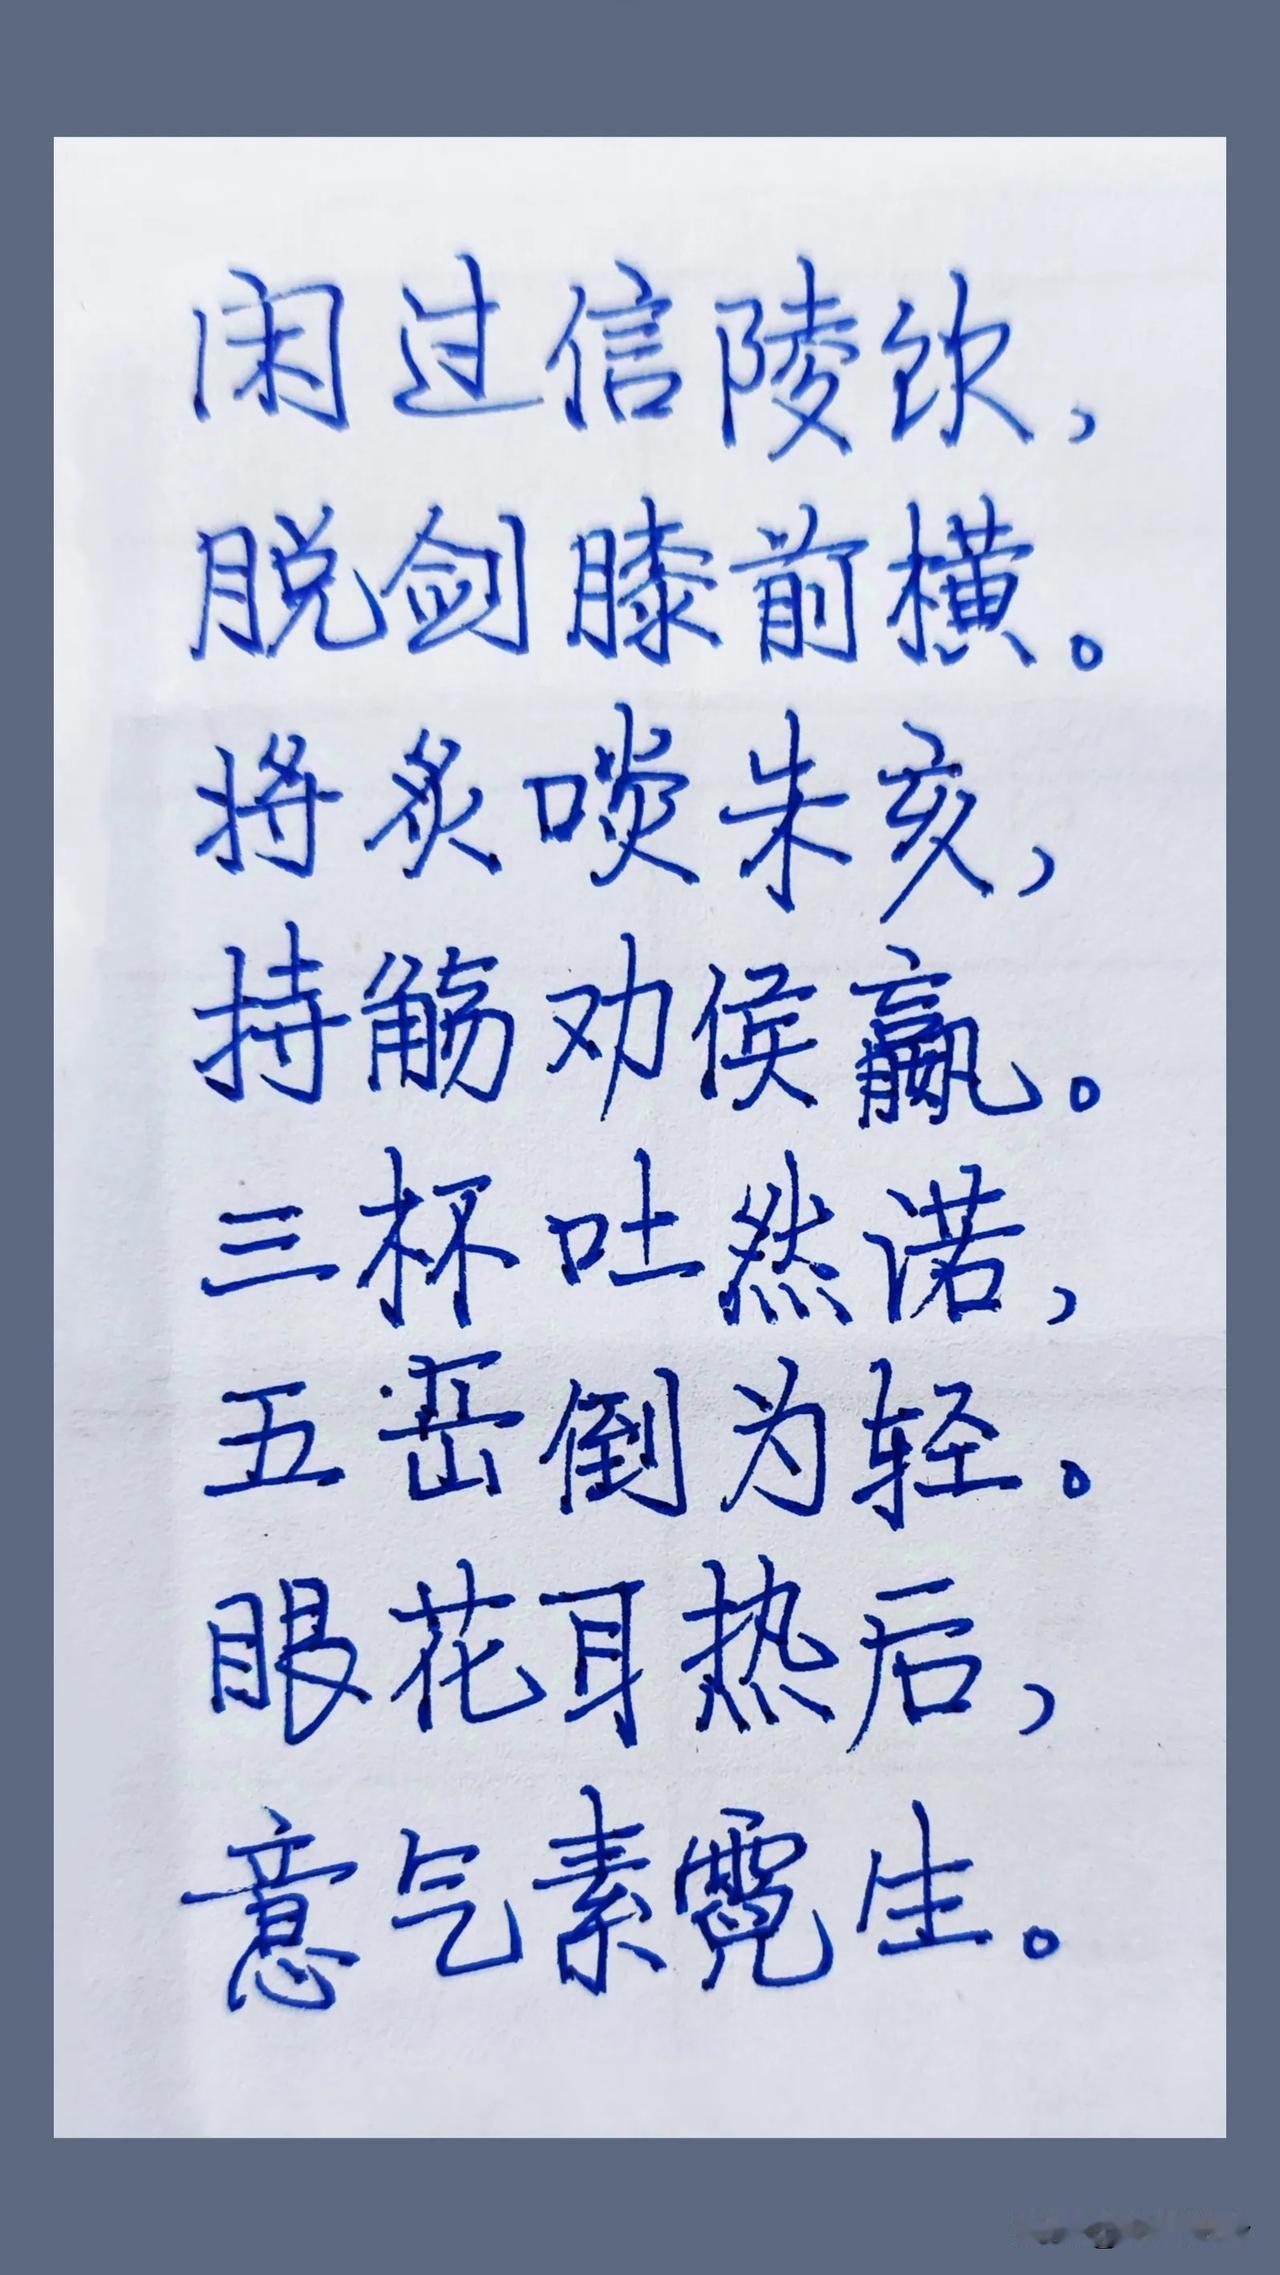 闲过信陵饮，
脱剑膝前横。
将炙啖朱亥，
持觞劝侯嬴。
三杯吐然诺，
五岳倒为轻。
眼花耳热后，
意气素霓生。